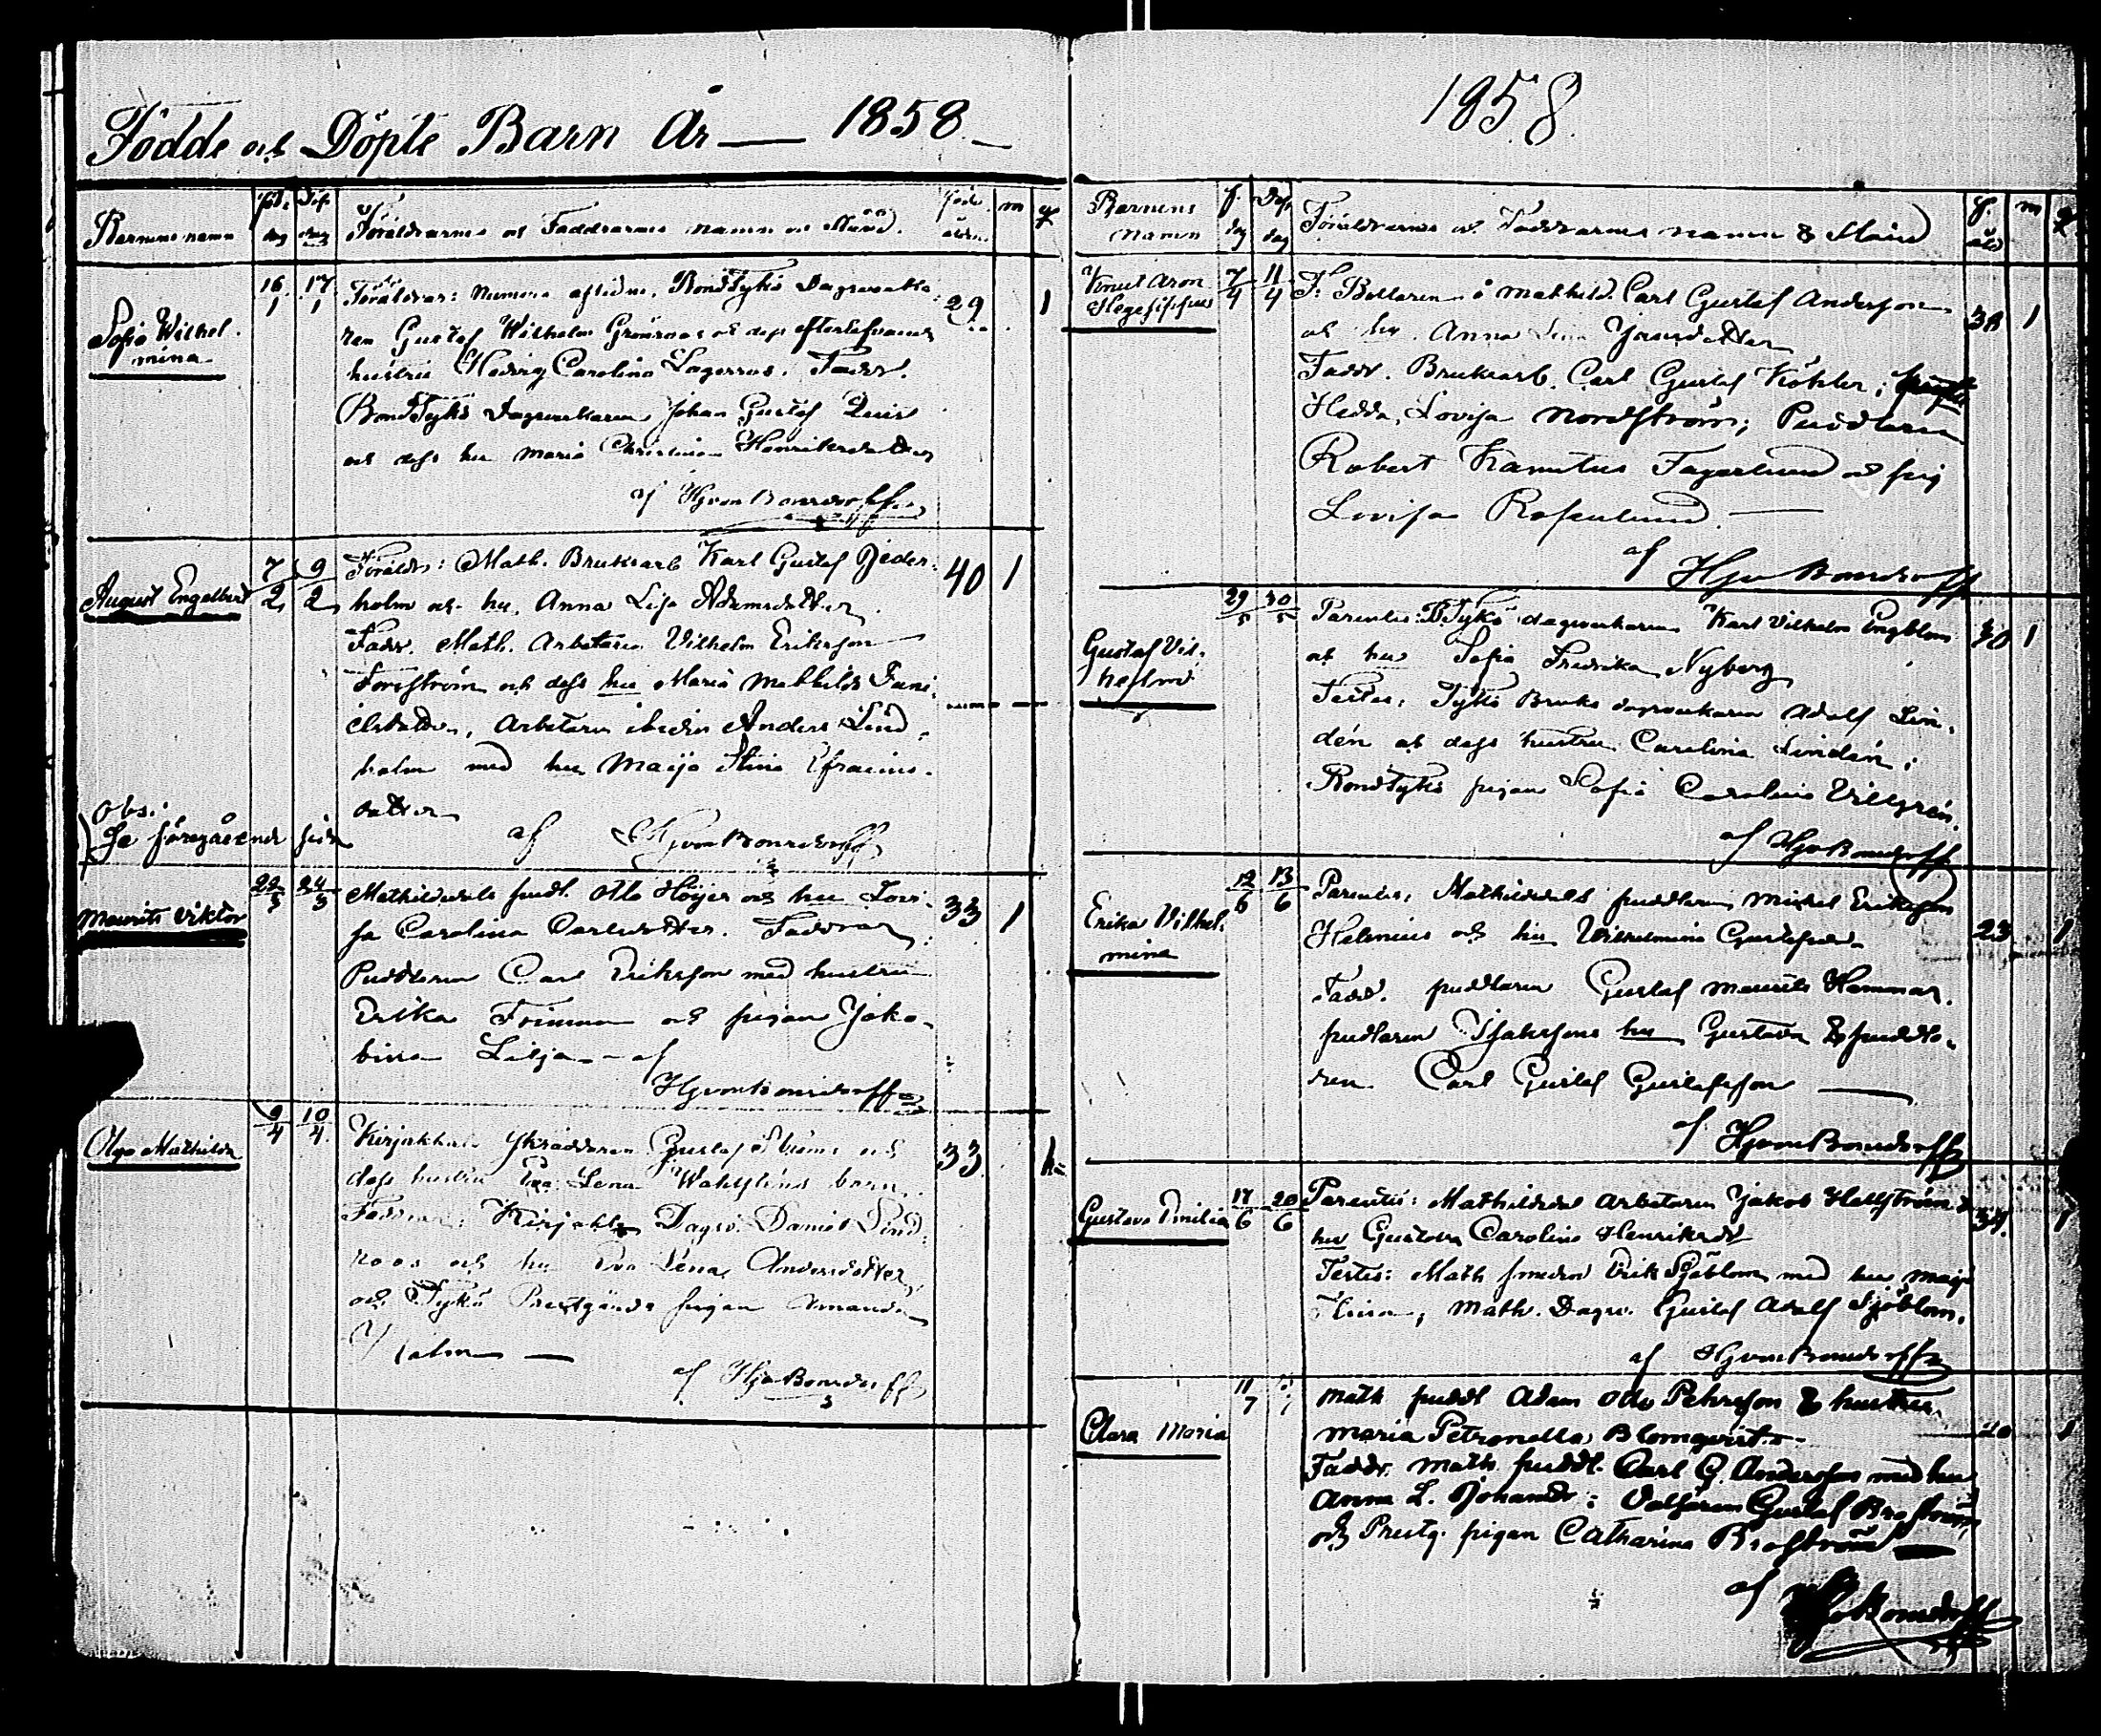 Födde och Döpte Barn År — 1858 —
Barnens namn
föd. dag
döp. dag
Föräldrarnes och Faddrarnes namn och Stånd.
m
q
Sofia Wilhel-
mina
16/1 17/1
Föräldrar: numera aflidne, BondTykö Dagsverka-
ren Gustaf Wilhelm Grönroos och dess efterlefvande
hustru Hedvig Carolina Lagerroos. Faddr.
BondTykö Dagsverkaren Johan Gustaf
och dess hu Maria Christina Henriksdotter
af HjvonBonsdorff
29 1
August Engelbert
7/2 9/2
Föräldr: Math. Bruksarb Karl Gustaf Ceder-
holm och hu, Anna Lisa Adamsdotter
Fadr. Math. Arbetaren Vilhelm Eriksson
Forsström och dess hu Maria Mathilda Dani-
elsdotter, Arbetaren ibidm Anders Lind-
holm med hu Maija Stina Efraims-
dotter
af HjvonBonsdorff
40 1
Obs:
Se föregående sida
Maurits Viktor
22/3 24/3
Mathildedals pudl. Otto Höijer och hu Lovi-
sa Carolina Carlsdotter. Faddrar
Puddlaren Carl Eriksson med hustru
Erika Froman och pigan Jako-
bina Lilja — af
HjvonBonsdorff
33 1
Olga Mathilda
9/4 10/4
Kirjakkala skräddaren Gustaf Ström och
dess hustru Eva Lena Wahlsténs barn.
Faddrar: Kirjakkala Dagsv. Daniel Lind-
roos och hu Eva Lena Andersdotter,
och Tykö Prestgårds pigan Amanda
Holm —
af HjvBonsdorff
33 1
1858.
Barnens
namn
f. dag
Döp. dag
Föräldrarnes och Faddrarnes namn & Stånd
f. åld
m
q
Knut Aron
Hegesippus
7/4 11/4
F: Bollaren å Mathild. Carl Gustaf Andersson
och hu. Anna Lena Jansdotter
Faddr. Bruksarb. Carl Gustaf Köhler;
Hedda, Lovisa Nordström; Puddlaren
Robert Kanutus Fagerlund och pig
Lovisa Rosenlund. —
af
Hjv Bonsdorff
1
Gustaf Vil-
helm
29/5 30/5
Parentes: BTykö dagsverkaren Karl Vilhelm Engblom
och hu Sofia Fredrika Nyberg
Testes: Tykö Bruks dagsverkaren Adolf Lin-
dén och dess hustru Carolina Lindén;
BondTykö pigan Sofia Carolina Villgrén.
af HjvBonsdorff
30 1
Erika Vilhel-
mina
12/6 13/6
Parentes: Mathildedals puddlaren Mickel Eriksson
Helenius och hu Wilhelmina Gustafsd.
Fadd. puddlaren Gustaf Maurits Hammar.
pudlaren Isakssons hu Gustava & puddla-
ren Carl Gustaf Gustafsson —
af HjvonBonsdorff
23 1
Gustava Emilia
17/6 20/6
Parentes: Mathildedal Arbetaren Jakob Hellström &
hu Gustava Carolina Henriksdr
Testes: Math smeden Erik Sjöblom med hu Maija
Stina, Math. Dagsv. Gustaf Adolf Sjöblom.
af HjvonBonsdorff
34. 1
Clara Maria
11/7
Math puddl Adam Otto Pehrsson & hustru
Maria Petronella Blomqvist. —
Faddr. Math. puddl. Carl G. Andersson med hu
Anna L. Johansdr: Valsaren Gustaf Broström
och Prestg. pigan Catharina Broström —
af HjvBonsdorff
1